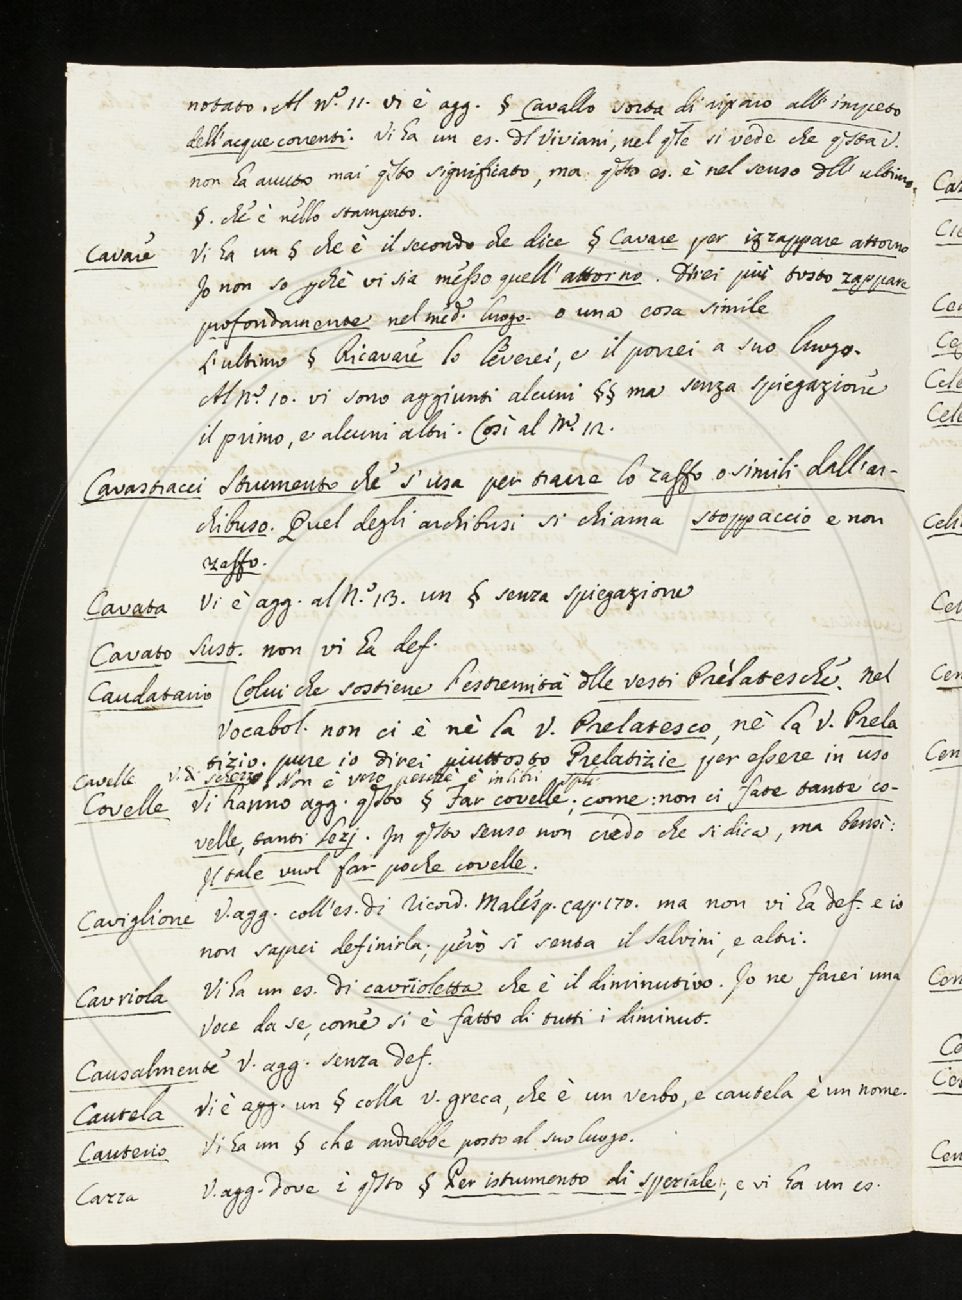 notato. Al N.º 11. vi è agg. § Cavallo sorta di riparo all'impeto
dell'acque correnti. Vi ha un es. dl Viviani, nel qle si vede che qsta V.
non ha avuto mai qsto significato, ma qsto es. è nel senso dll' ultimo
§. che è nello stampato.
Cavare Vi ha un § che è il secondo che dice § Cavare per izzappare attorno
Io non so pchè vi sia messo quell'attorno. Direi più tosto zappare
profondamente nel med.º luogo. o una cosa simile
L'ultimo § Ricavare lo leverei, e il porrei a suo luogo.
Al N.º 10. vi sono aggiunti alcuni §§ ma senza spiegazione
il primo, e alcuni altri. Così al N.º 12.
Cavastracci Strumento che s'usa per trarre lo zaffo o simili dall'ar-
chibuso. Quel degli archibusi si chiama stoppaccio e non
zaffo.
Cavata Vi è agg. al N.º 13. un § senza spiegazione
Cavato Sust. non vi ha def.
Caudatario Colui che sostiene l'estremità dlle vesti Prelatesche. nel
Vocabol. non ci è nè la V. Prelatesco, nè la V. Prela
tizio. pure io direi piuttosto Prelatizie per essere in uso
Cavelle V. di scherzo Non è vero perchè è in libri
Covelle Vi hanno agg. qsto § Far covelle; come: non ci fate tante co-
velle, tanti lezj. In qsto senso non credo che si dica, ma bensì:
Il tale vuol far poche covelle.
Caviglione V. agg. coll'es. di Ricord. Malesp. cap. 170. ma non vi ha def. e io
non saprei definirla; però si senta il Salvini, e altri.
Cavriola Vi ha un es. di cavrioletta che è il diminutivo. Io ne farei una
voce da se, come si è fatto di tutti i diminut.
Causalmente V. agg. senza def.
Cautela Vi è agg. un § colla V. greca, che è un verbo, e cautela è un nome.
Cauterio Vi ha un § che andrebbe posto al suo luogo.
Cazza V. agg. dove è qsto § Per istrumento di speziale; e vi ha un es.